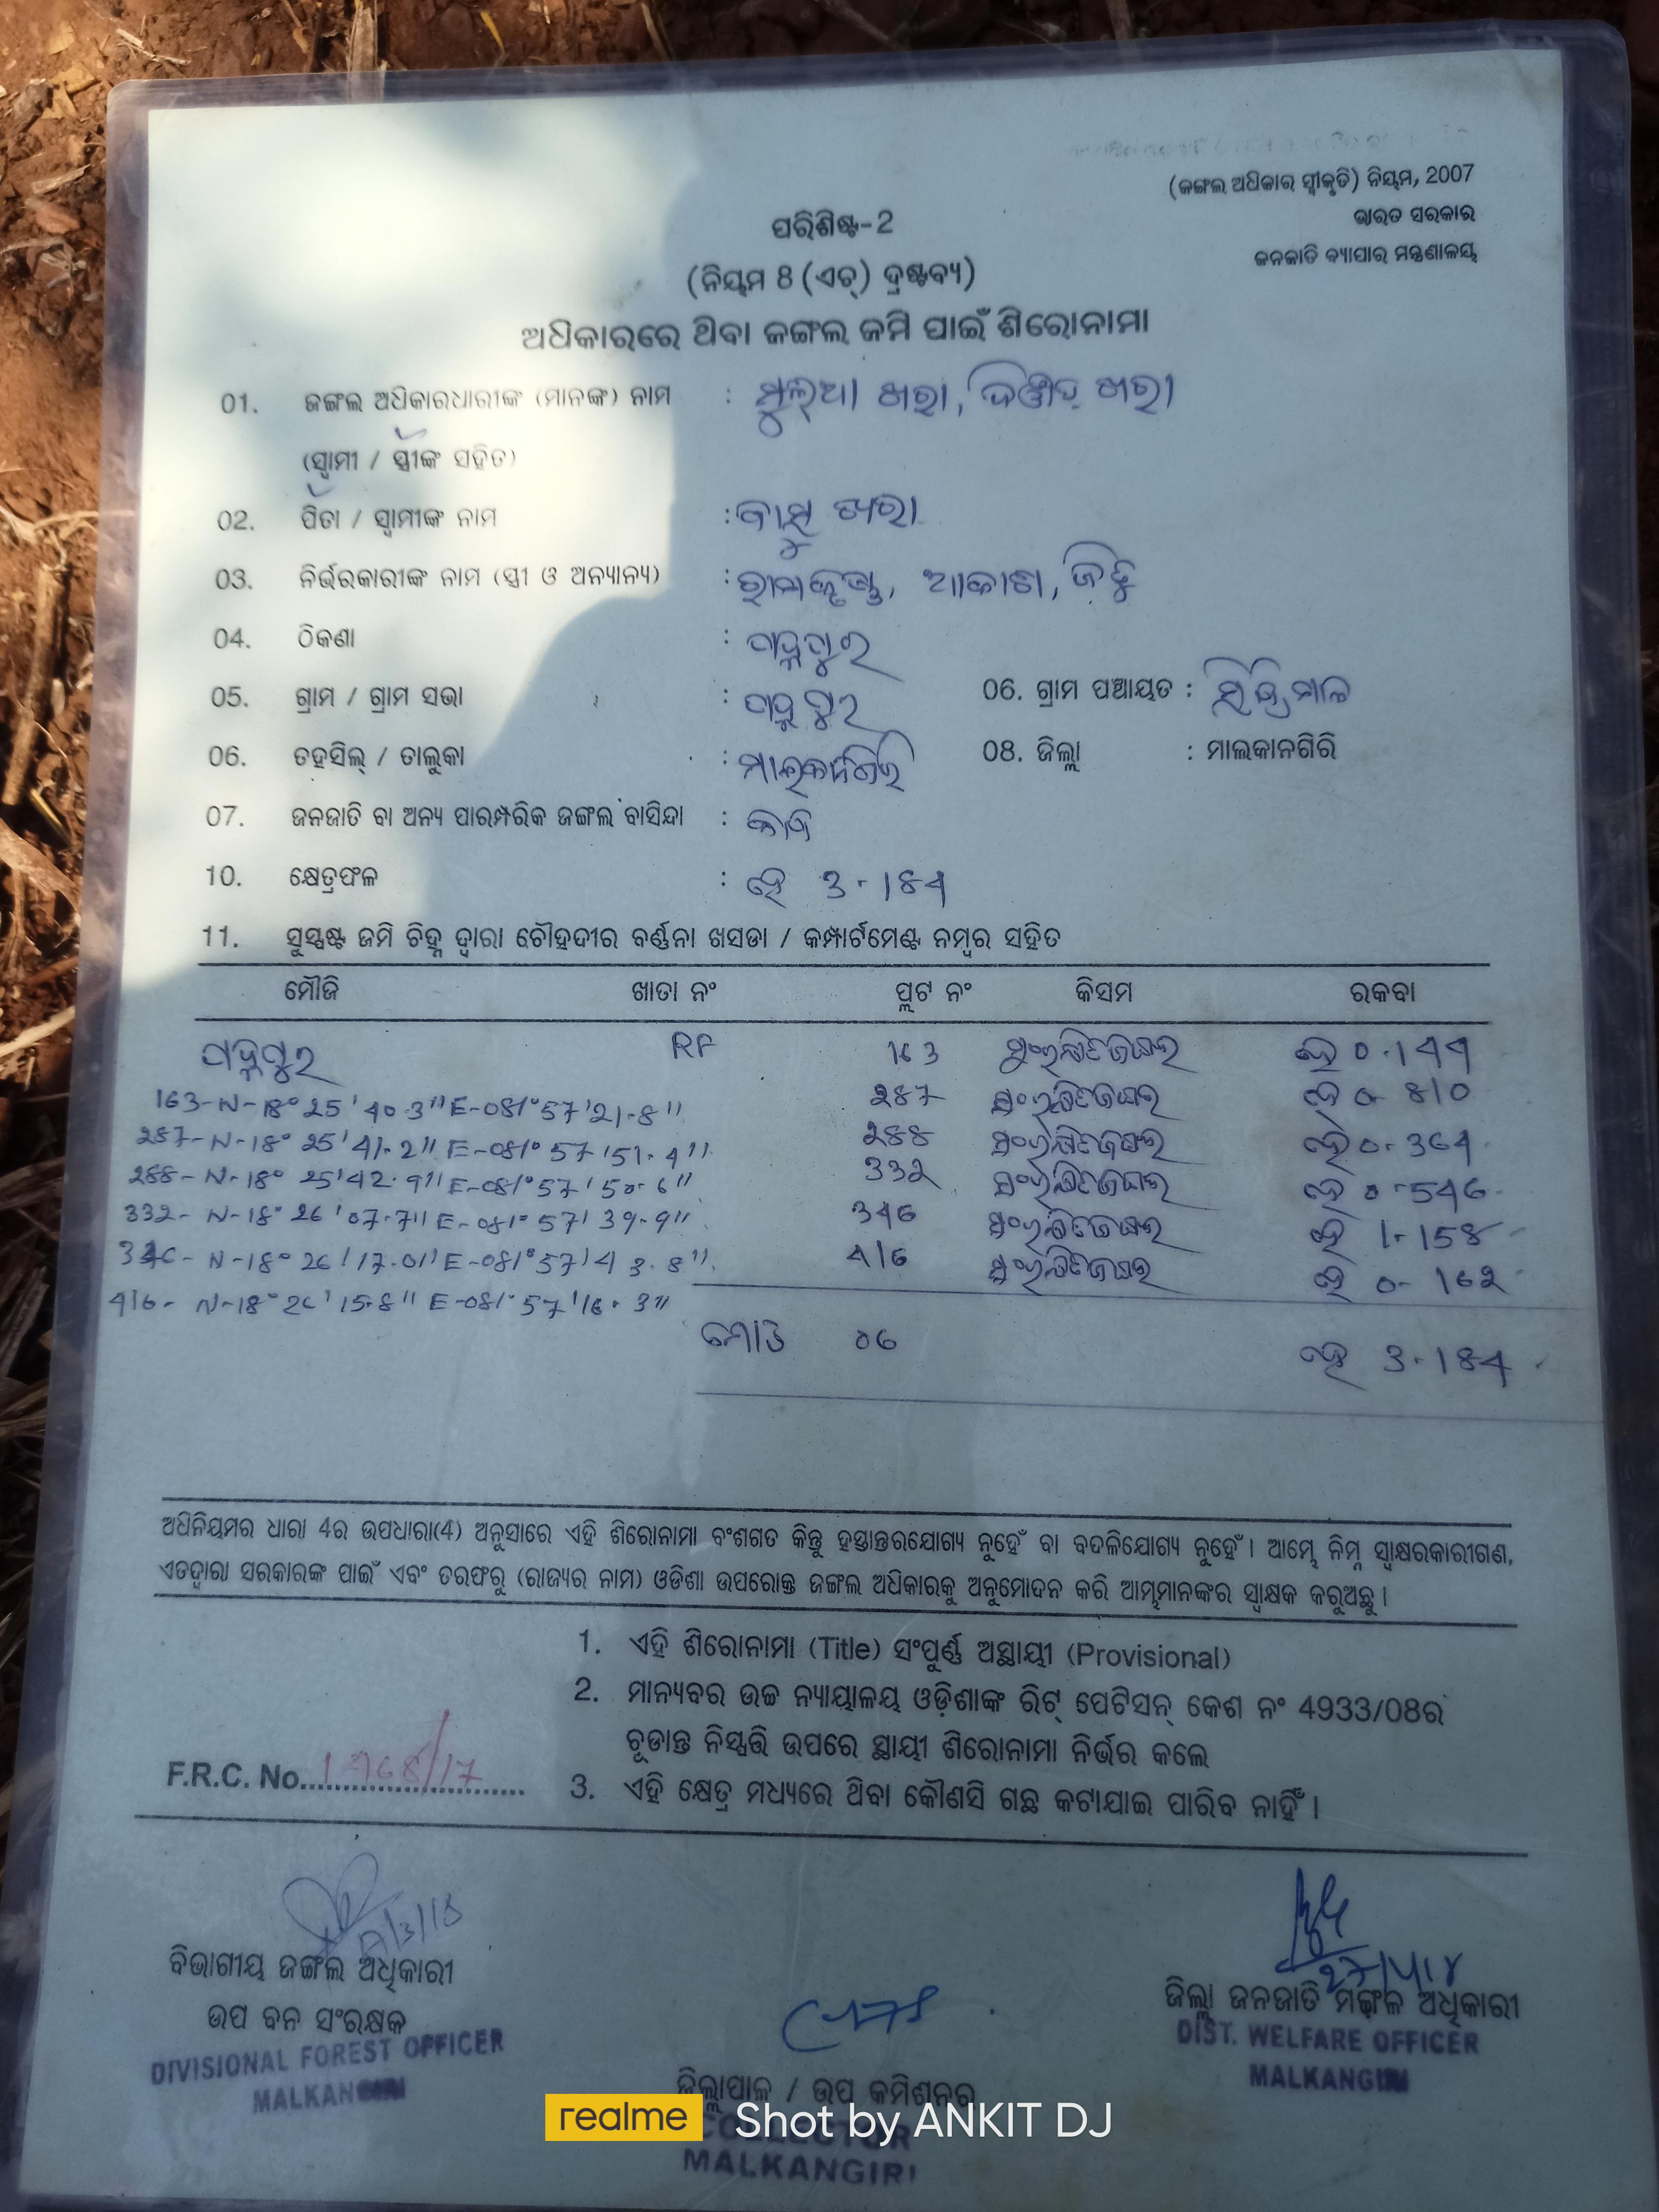 (ଜଙ୍ଗଲ ଅଧିକାର ସ୍ୱୀକୃତି) ନିୟମ, 2007
ଭାରତ ସରକାର
ଜନଜାତି ବ୍ୟାପାର ମନ୍ତ୍ରଣାଳୟ
ପରିଶିଷ୍ଟ-2
(ନିୟମ 8 (ଏଚ୍) ଦ୍ରଷ୍ଟବ୍ୟ)
ଅଧିକାରରେ ଥିବା ଜଙ୍ଗଲ ଜମି ପାଇଁ ଶିରୋନାମା
01. ଜଙ୍ଗଲ ଅଧିକାରଧାରୀଙ୍କ (ମାନଙ୍କ) ନାମ : ଖରା, ଖରା
(ସ୍ୱାମୀ / ସ୍ତ୍ରୀଙ୍କ ସହିତ)
02. ପିତା / ସ୍ୱାମୀଙ୍କ ନାମ : ବାସୁ ଖରା
03. ନିର୍ଭରକାରୀଙ୍କ ନାମ (ସ୍ତ୍ରୀ ଓ ଅନ୍ୟାନ୍ୟ) : ରାମକୃଷ୍ଣ, ଆକାଶ, ଜିତୁ
04. ଠିକଣା :
05. ଗ୍ରାମ / ଗ୍ରାମ ସଭା : 06. ଗ୍ରାମ ପଞ୍ଚାୟତ :
06. ତହସିଲ୍ / ତାଲୁକା : ମାଲକାନଗିରି 08. ଜିଲ୍ଲା : ମାଲକାନଗିରି
07. ଜନଜାତି ବା ଅନ୍ୟ ପାରମ୍ପରିକ ଜଙ୍ଗଲ ବାସିନ୍ଦା :
10. କ୍ଷେତ୍ରଫଳ : ହେ 3.184
11. ସୁସ୍ପଷ୍ଟ ଜମି ଚିହ୍ନ ଦ୍ୱାରା ଚୌହଦୀର ବର୍ଣ୍ଣନା ଖସଡା / କମ୍ପାର୍ଟମେଣ୍ଟ ନମ୍ବର ସହିତ
ମୌଜି ଖାତା ନଂ ପ୍ଲଟ ନଂ କିସମ ରକବା
RF 163 ହେ 0.144
163-N-18°25'40.3" E-081°57'21.8" 287 ହେ 0-810
287-N-18°25'41.2" E-081°57'51.4" 288 ହେ 0-364
288-N-18°25'42.9" E-081°57'50.6" 332 ହେ 0-546
332-N-18°26'07.7" E-081°57'39.9" 346 ହେ 1-158
346-N-18°26'17.01" E-081°57'43.8" 416 ହେ 0-162
416-N-18°26'15.8" E-081°57'16.3"
ମୋଟ 06 ହେ 3.184
ଅଧିନିୟମର ଧାରା 4ର ଉପଧାରା(4) ଅନୁସାରେ ଏହି ଶିରୋନାମା ବଂଶଗତ କିନ୍ତୁ ହସ୍ତାନ୍ତରଯୋଗ୍ୟ ନୁହେଁ ବା ବଦଳିଯୋଗ୍ୟ ନୁହେଁ। ଆମ୍ଭେ ନିମ୍ନ ସ୍ୱାକ୍ଷରକାରୀଗଣ,
ଏତଦ୍ୱାରା ସରକାରଙ୍କ ପାଇଁ ଏବଂ ତରଫରୁ (ରାଜ୍ୟର ନାମ) ଓଡିଶା ଉପରୋକ୍ତ ଜଙ୍ଗଲ ଅଧିକାରକୁ ଅନୁମୋଦନ କରି ଆମ୍ଭମାନଙ୍କର ସ୍ୱାକ୍ଷକ କରୁଅଛୁ।
1. ଏହି ଶିରୋନାମା (Title) ସଂପୂର୍ଣ୍ଣ ଅସ୍ଥାୟୀ (Provisional)
2. ମାନ୍ୟବର ଉଚ୍ଚ ନ୍ୟାୟାଳୟ ଓଡ଼ିଶାଙ୍କ ରିଟ୍ ପେଟିସନ୍ କେଶ ନଂ 4933/08ର
ଚୂଡାନ୍ତ ନିସ୍ପତ୍ତି ଉପରେ ସ୍ଥାୟୀ ଶିରୋନାମା ନିର୍ଭର କଲେ
F.R.C. No.
3. ଏହି କ୍ଷେତ୍ର ମଧ୍ୟରେ ଥିବା କୌଣସି ଗଛ କଟାଯାଇ ପାରିବ ନାହିଁ।
ବିଭାଗୀୟ ଜଙ୍ଗଲ ଅଧିକାରୀ
ଉପ ବନ ସଂରକ୍ଷକ
DIVISIONAL FOREST OFFICER
MALKANGIRI
ଜିଲ୍ଲା ଜନଜାତି ମଙ୍ଗଳ ଅଧିକାରୀ
DIST. WELFARE OFFICER
MALKANGIRI
ଜିଲ୍ଲାପାଳ / ଉପ କମିଶନର
COLLECTOR
MALKANGIRI
realme Shot by ANKIT DJ